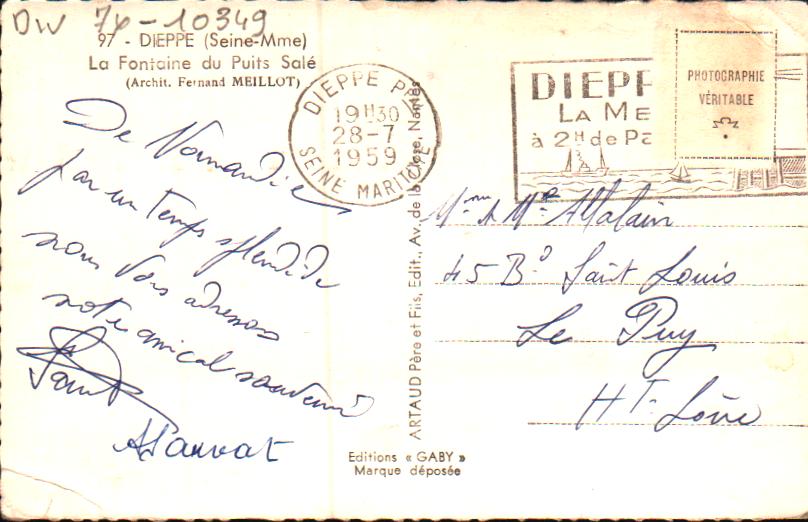 DW 76-10349
97 - DIEPPE (Seine-Mme)
La Fontaine du Puits Salé
(Archit. Fernand MEILLOT)
De Normandie
par un temps splendide
nous vous adressons
notre amical souvenir
ASauvat
Editions « GABY »
Marque déposée
ARTAUD Père et Fils, Edit., Av. de la Close, Nantes
DIEPPE PPAL
19H30
28-7
1959
SEINE MARITIME
DIEPP
LA ME
à 2H de Pa
PHOTOGRAPHIE
VÉRITABLE
Mme & Mr Allalain
45 Bd Saint Louis
Le Puy
Hte Loire